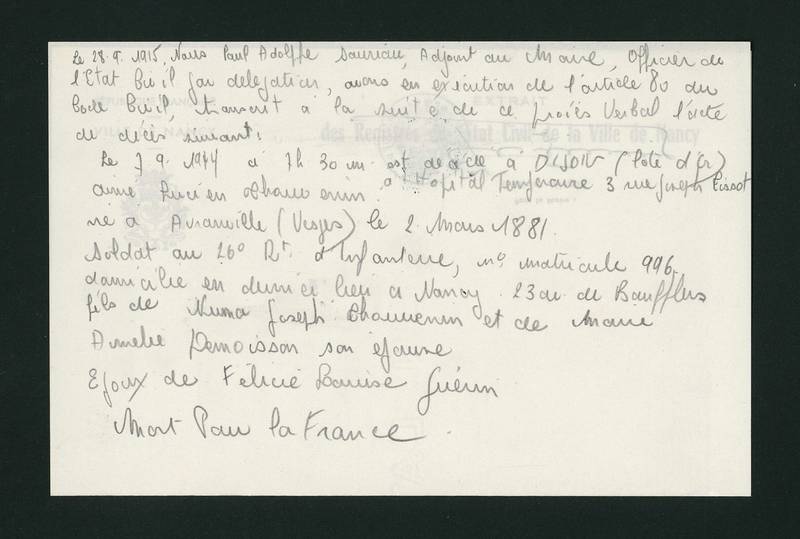 Le 28.9.1915, Nous Paul Adolphe Sauriau, Adjoint au Maire, Officier de
l'Etat Civil par delegation, avons en exécution de l'article 80 du
Code Civil, transcrit a la suite de ce procès Verbal l'acte
de décès suivant:
Le 7 9. 1914 a 7h 30 m. est décédé à DIJON (Cote d'or)
a l'Hopital Temporaire 3 rue Joseph Tissot
aimé Lucien Chauvenin
né a Avranville (Vosges) le 2 Mars 1881.
Soldat au 26° Rt. d'Infanterie, no matricule 996,
domicilié en dernier lieu a Nancy 23 av. de Boufflers
fils de Numa Joseph Chauvenin et de Marie
Amelie Demoisson son épouse
Epoux de Félicie Louise Guérin
Mort Pour la France.
EXTRAIT
des Registres de l'Etat Civil de la Ville de Nancy